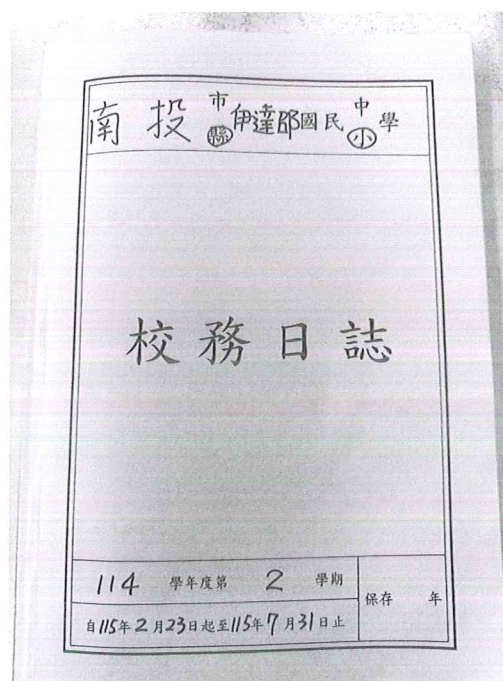 南投市縣伊達邵國民中小學
校務日誌
114 學年度第 2 學期
自115年2月23日起至115年7月31日止
保存 年